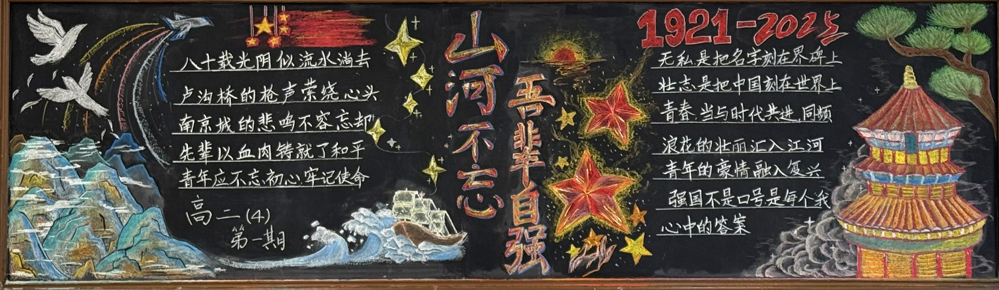 八十载光阴似流水淌去
卢沟桥的枪声荣绕心头
南京城的悲鸣不容忘却
先辈以血肉铸就了和平
青年应不忘初心牢记使命
高二(4)
第一期
山河不忘
吾辈自强
1921-2025
无私是把名字刻在界碑上
壮志是把中国刻在世界上
青春当与时代共进同频
浪花的壮丽汇入江河
青年的豪情融入复兴
强国不是口号是每个我
心中的答案